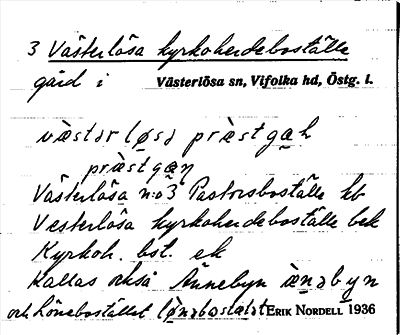 3 Västerlösa kyrkoherdeboställe
gård i Västerlösa sn, Vifolka hd, Östg. l.
væ̀stərløsə præ̀stgɑh
præ̀stgɑn
Västerlösa n:o 3 Pastorsboställe kb
Vesterlösa kyrkoherdeboställe bek
Kyrkoh. bst. ek
Kallas också Ännebyn æ̀nəbyn
och Lönebostället ERIK NORDELL 1936